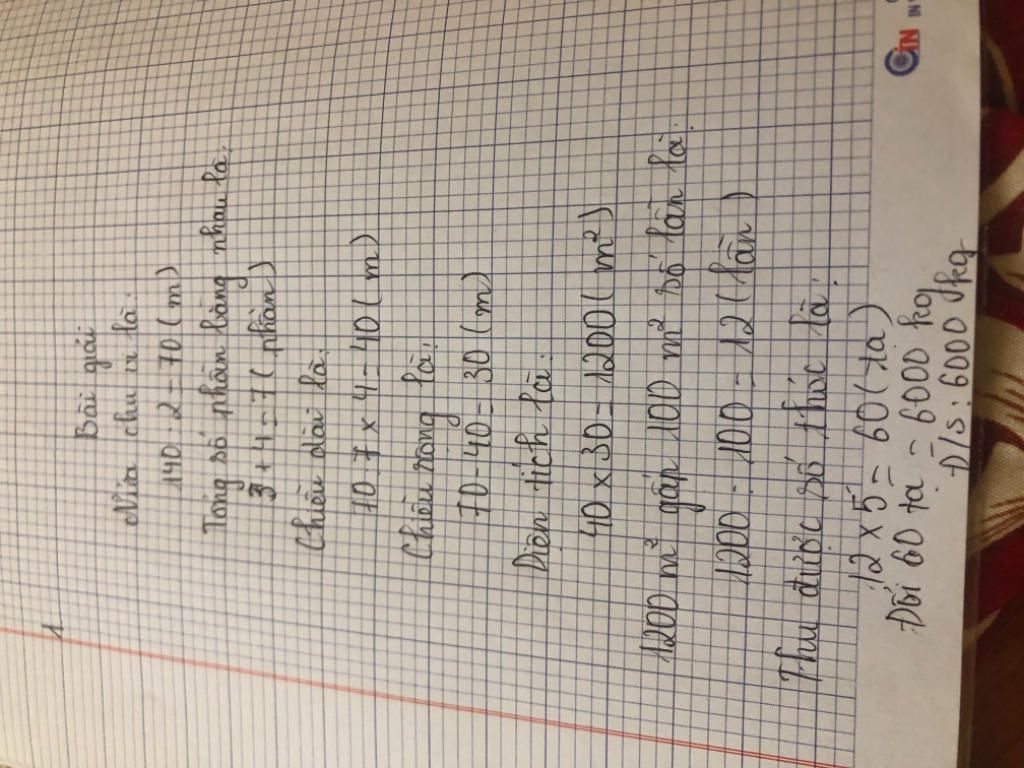 1
Bài giải
Nửa chu vi là:
140 : 2 = 70 (m)
Tổng số phần bằng nhau là:
3 + 4 = 7 (phần)
Chiều dài là:
70 : 7 x 4 = 40 (m)
Chiều rộng là:
70 - 40 = 30 (m)
Diện tích là:
40 x 30 = 1200 (m²)
1200 m² gấp 100 m² số lần là:
1200 : 100 = 12 (lần)
Thu được số thóc là:
12 x 5 = 60 (tạ)
Đổi 60 tạ = 6000 kg
Đ/s: 6000 kg
IN